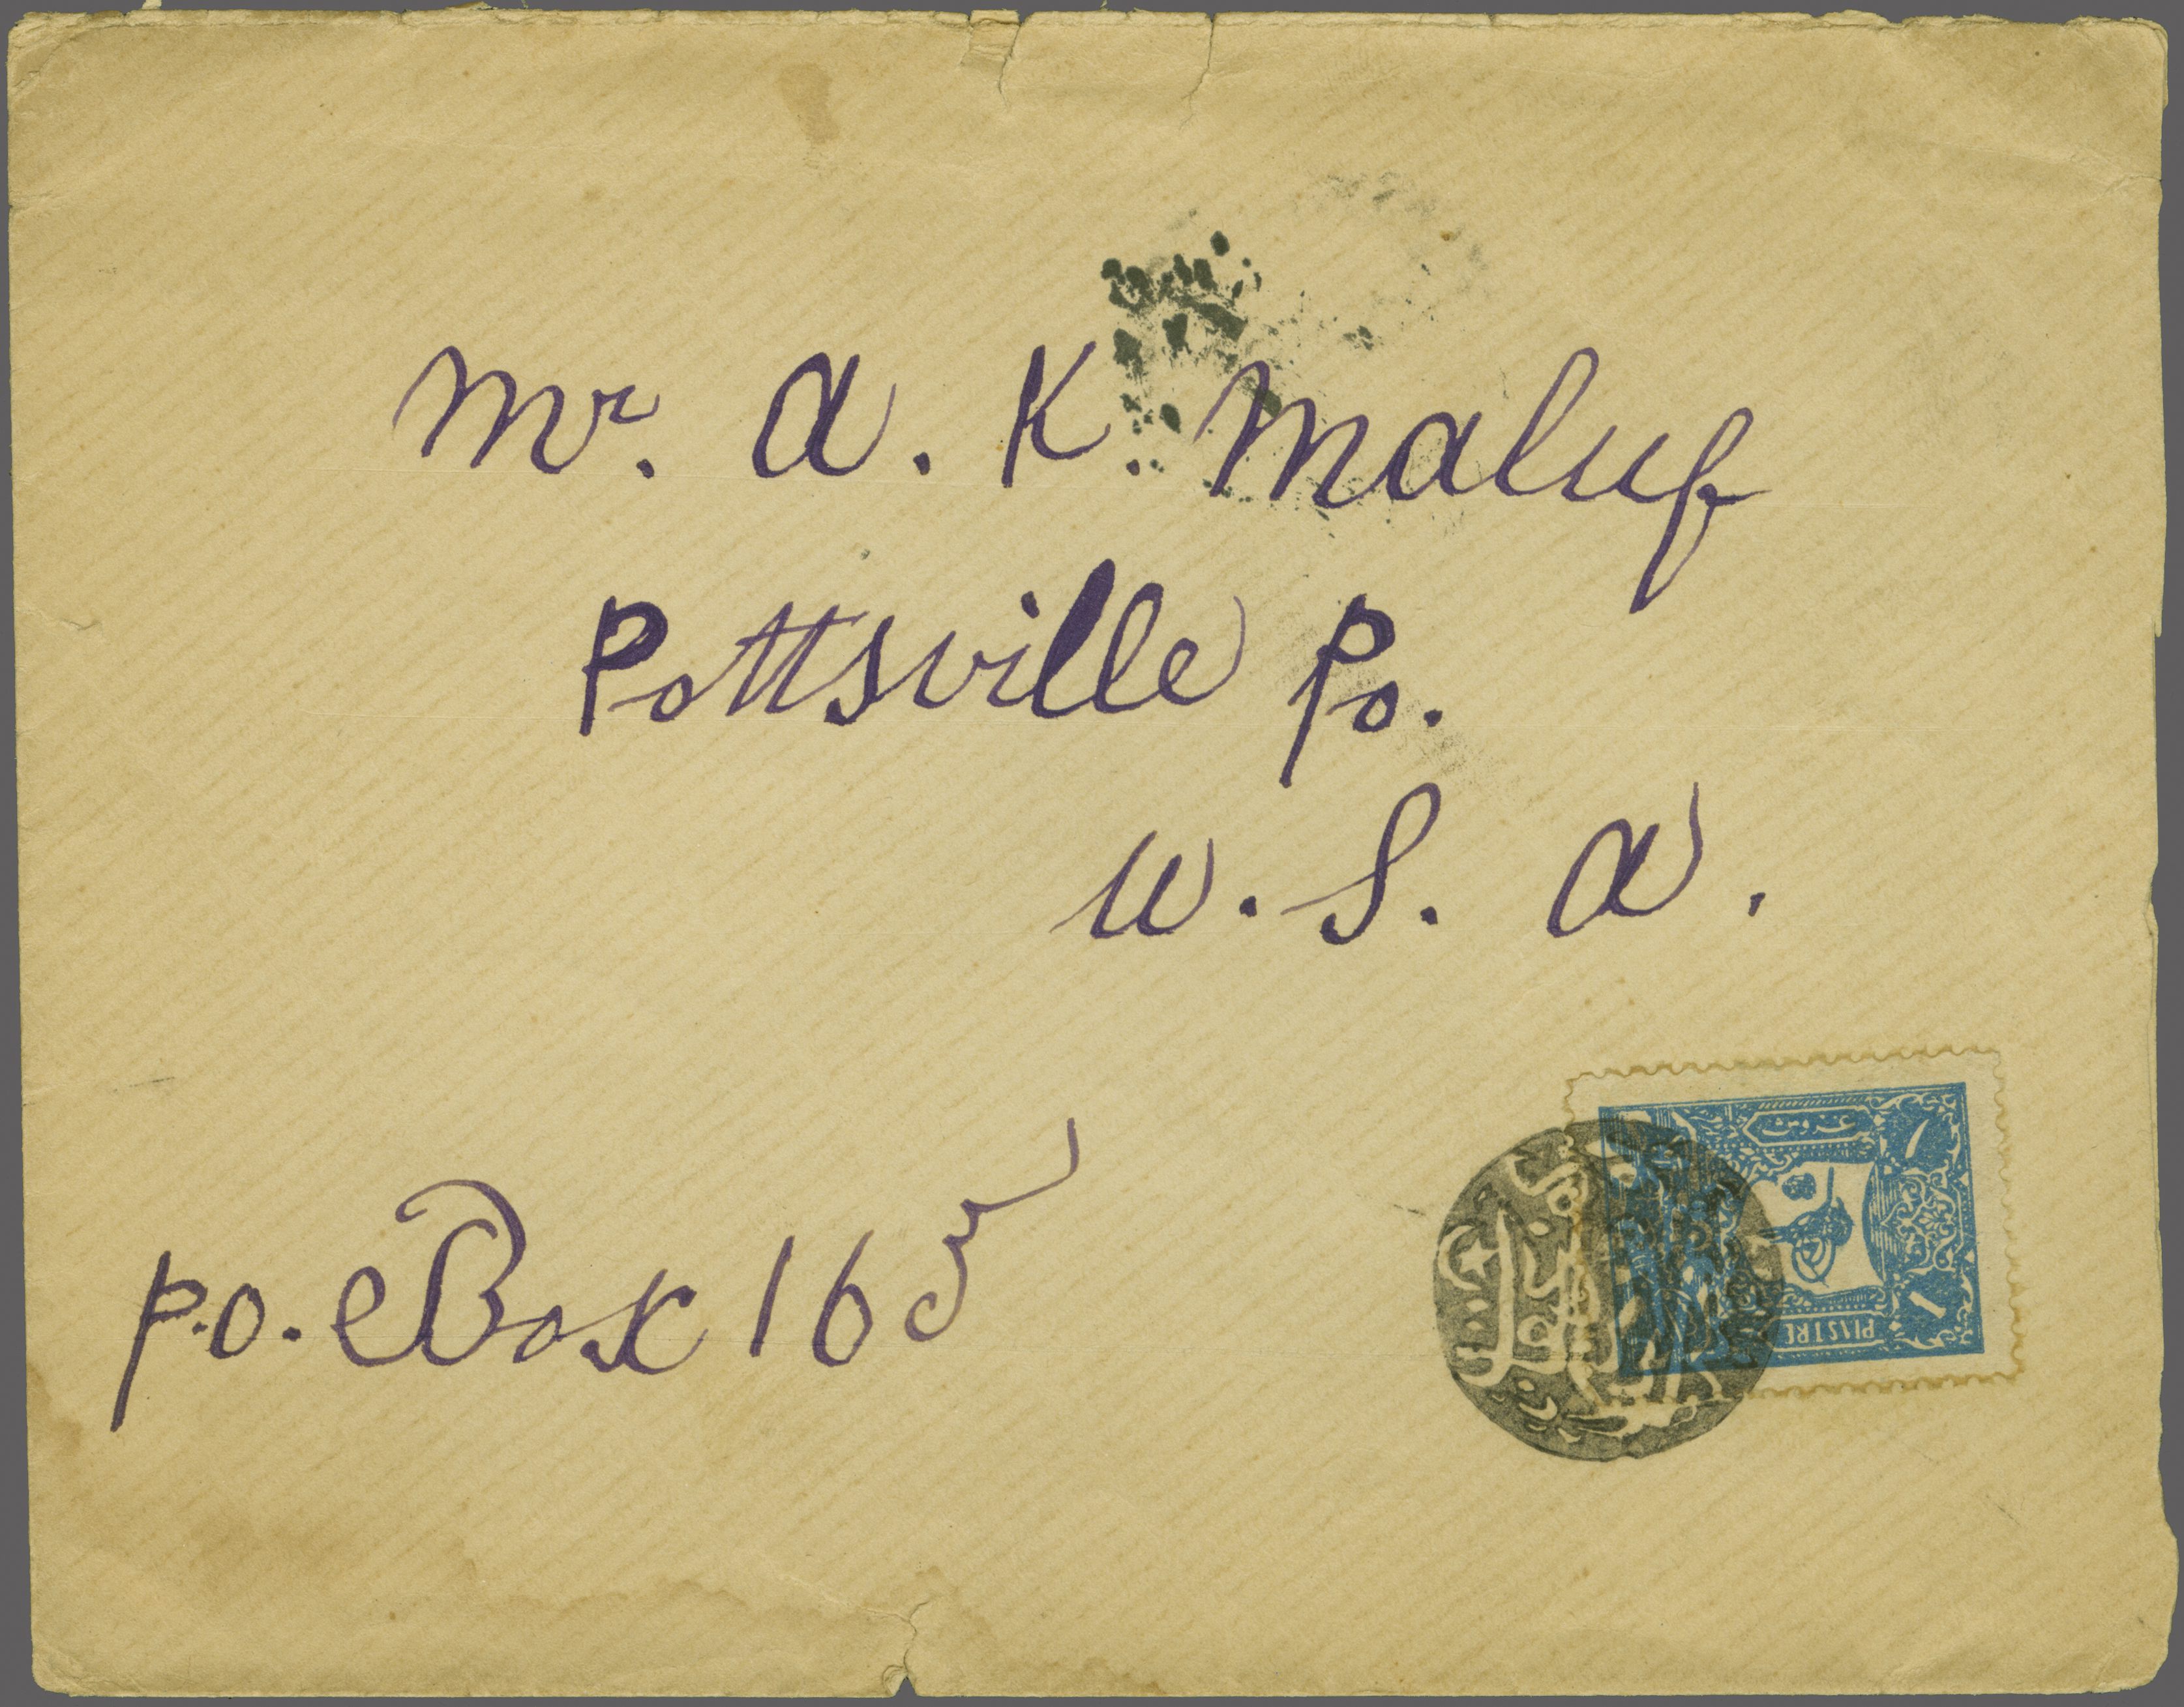 Mr. A. K. Maluf
Pottsville Pa.
U. S. A.
P.O. Box 165
غروش
١
1
PIASTRE